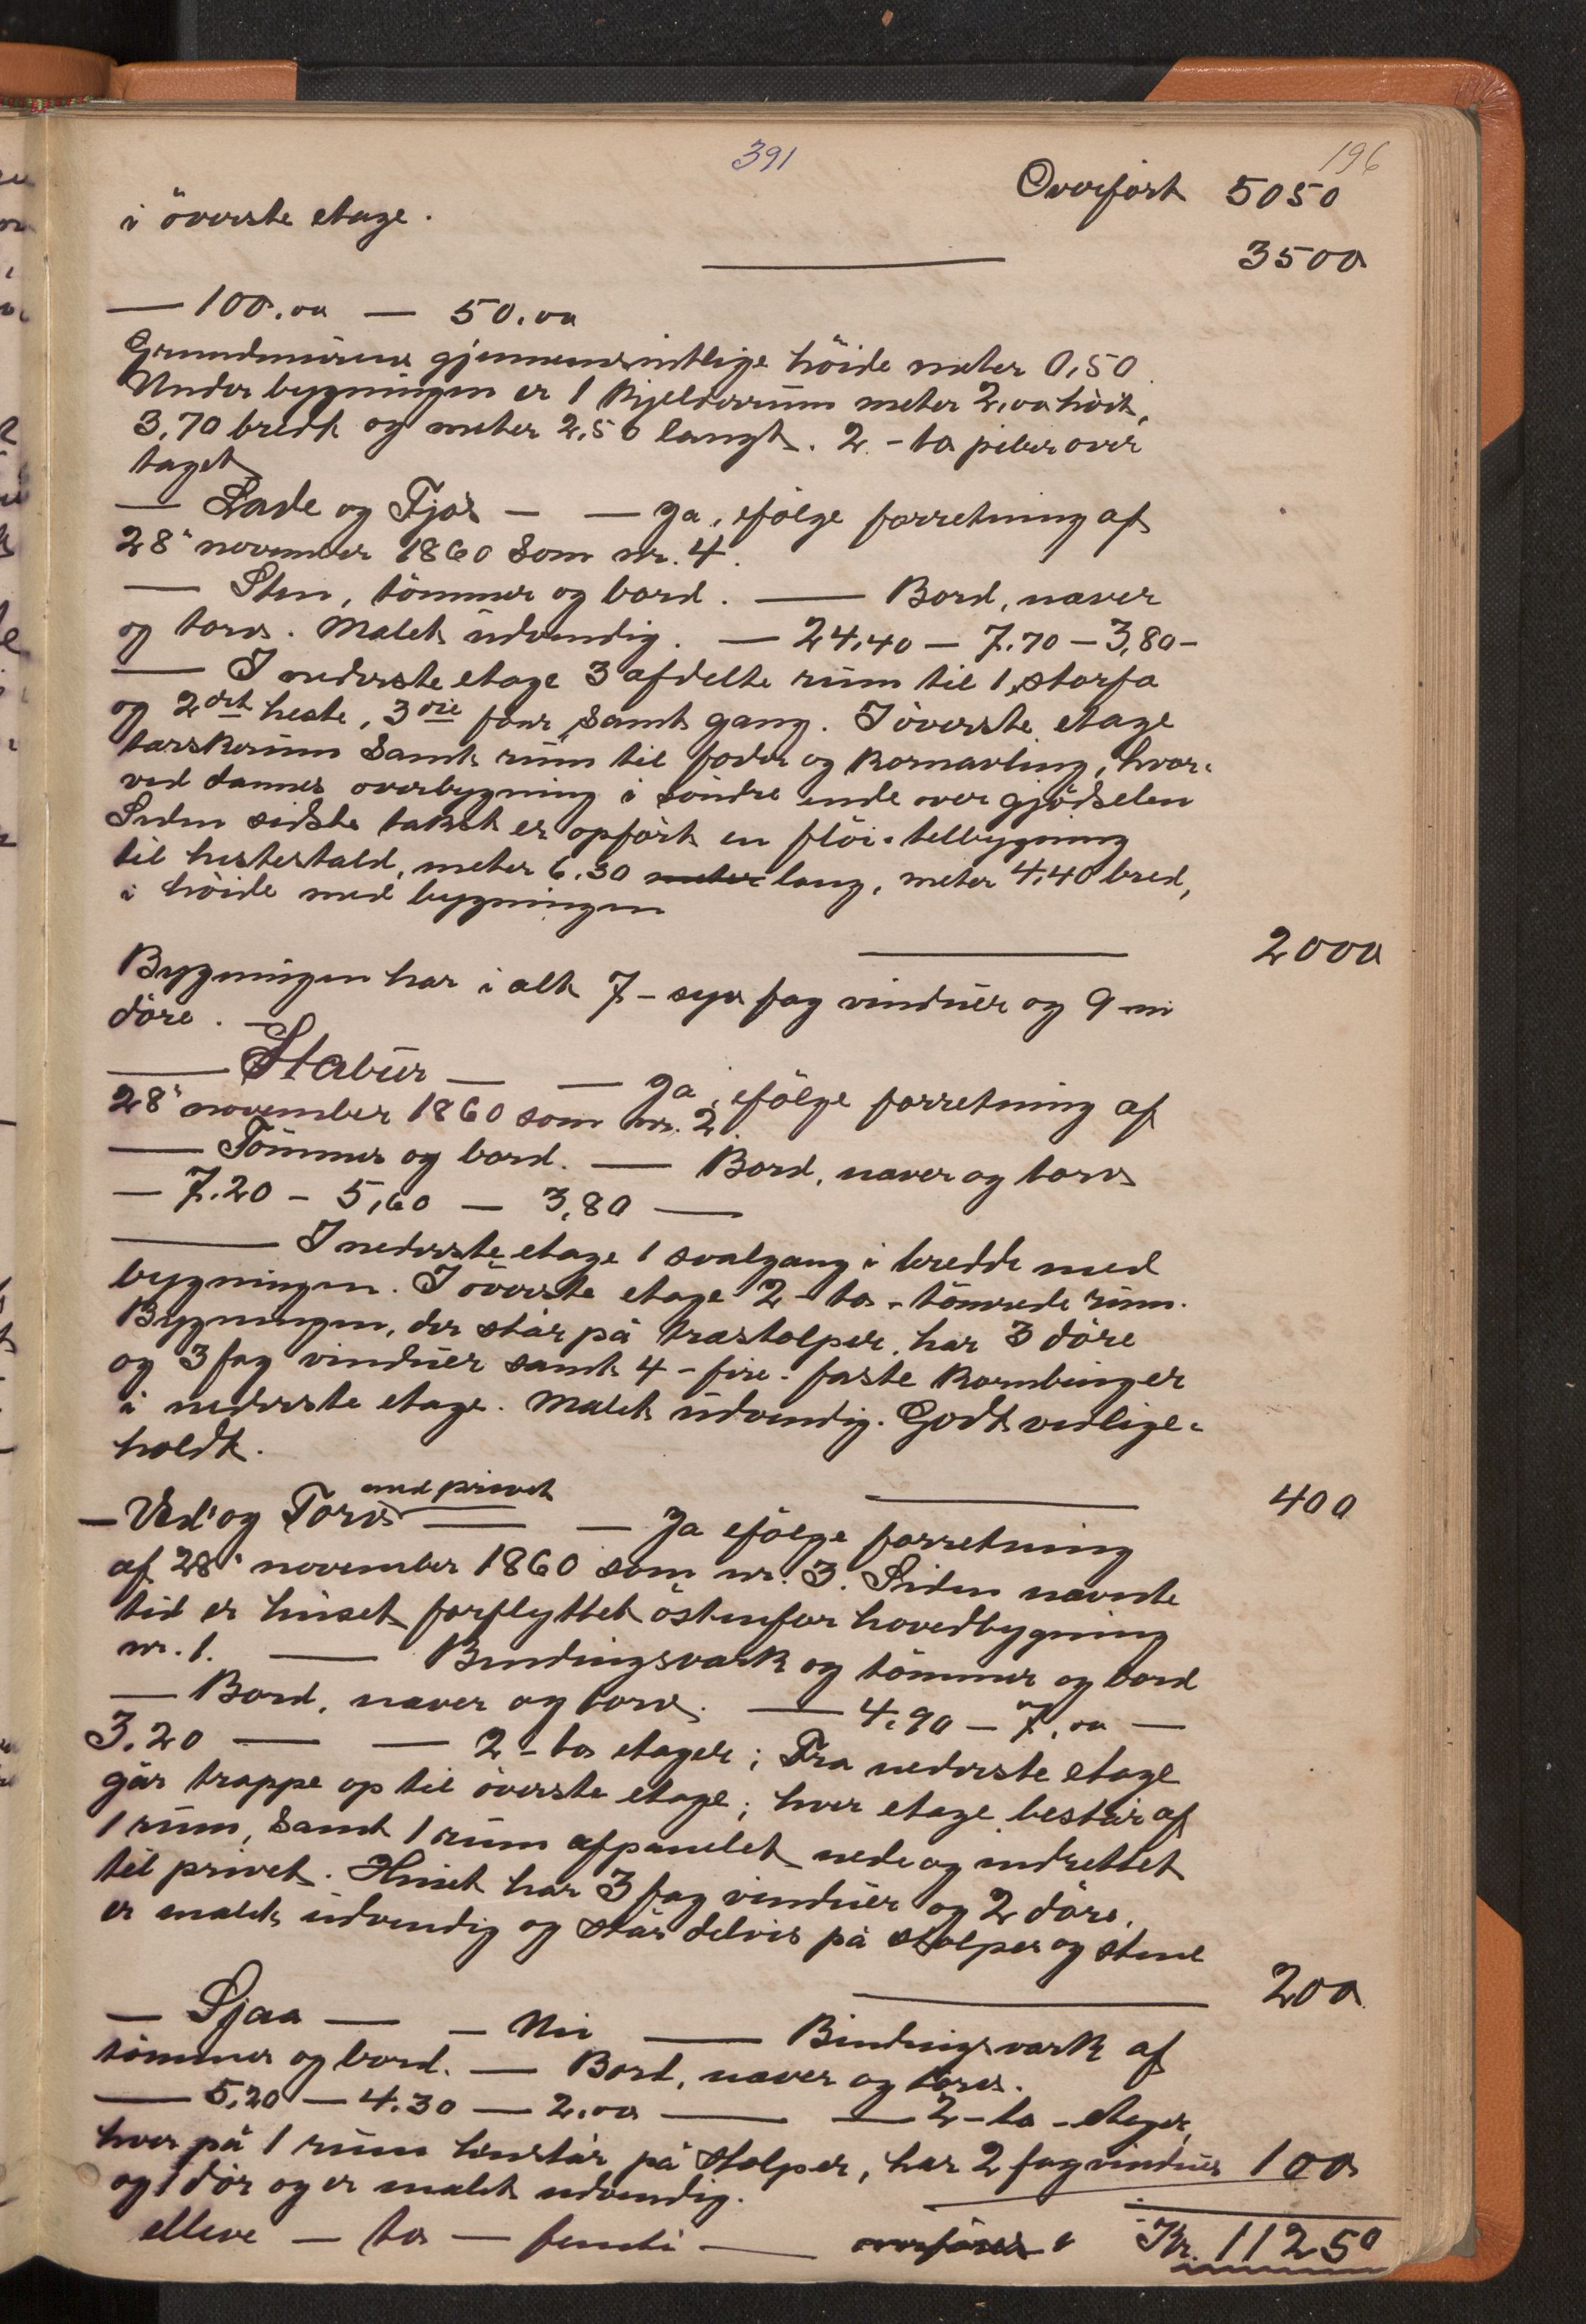 391
196
Overført 5050
i överste etage.
3500
— 100.00 — 50.00
Grundmurens gjennemsnitlige höide meter 0,50.
Under bygningen er 1 kjelderrum meter 2,00 höit,
3,70 bredt og meter 2,50 langt. 2 - to piber over
taget
— Lade og Fjös — — Ja, ifölge forretning af
28' november 1860 som nr. 4.
— Sten, tömmer og bord. — Bord, næver
og torv. Malet udvendig. — 24,40 — 7.70 — 3,80 -
— I nederste etage 3 afdelte rum til 1 storfä
og 2det heste, 3die faar, samt gang. I överste etage
tærskerum samt rum til foder og kornavling, hvor-
ved dannes overbygning i söndre ende over gjödselen
Siden sidste takst er opfört en flöi-tilbygning
til hestestald, meter 6.30 meter lang, meter 4,40 bred,
i höide med bygningen
2000
Bygningen har i alt 7 - syv fag vinduer og 9 - ni
döre.
— Stabur — — Ja, ifölge forretning af
28' november 1860 som nr. 2.
— Tömmer og bord. — Bord, næver og torv
— 7.20 — 5,60 — 3,80 —
— I nederste etage 1 svalgang i bredde med
bygningen. I överste etage 2 - to - tömrede rum.
Bygningen, der står på træstolper, har 3 döre
og 3 fag vinduer samt 4 - fire - faste kornbinger
i nederste etage. Malet udvendig. Godt vedlige-
holdt.
400
med privet
— Ved og Torv — — Ja ifölge forretning
af 28' november 1860 som nr. 3. Siden nævnte
tid er huset forflyttet östenfor hovedbygning
nr. 1. — Bindingsværk og tömmer og bord
— Bord, næver og torv. — 4,90 — 7,00 —
3.20 — — 2 - to etager; Fra nederste etage
går trappe op til överste etage; hver etage består af
1 rum, samt 1 rum afpanelet nede og indrettet
til privet. Huset har 3 fag vinduer og 2 döre,
er malet udvendig og står delvis på stolper og stene
200
— Sjaa — — Nei — Bindingsværk af
tömmer og bord. — Bord, næver og torv.
— 5,20 — 4.30 — 2.00 — — 2 - to - etager,
hver på 1 rum henstår på stolper, har 2 fag vinduer 100
og 1 dör og er malet udvendig.
elleve — to — femti — overföres Kr. 11250